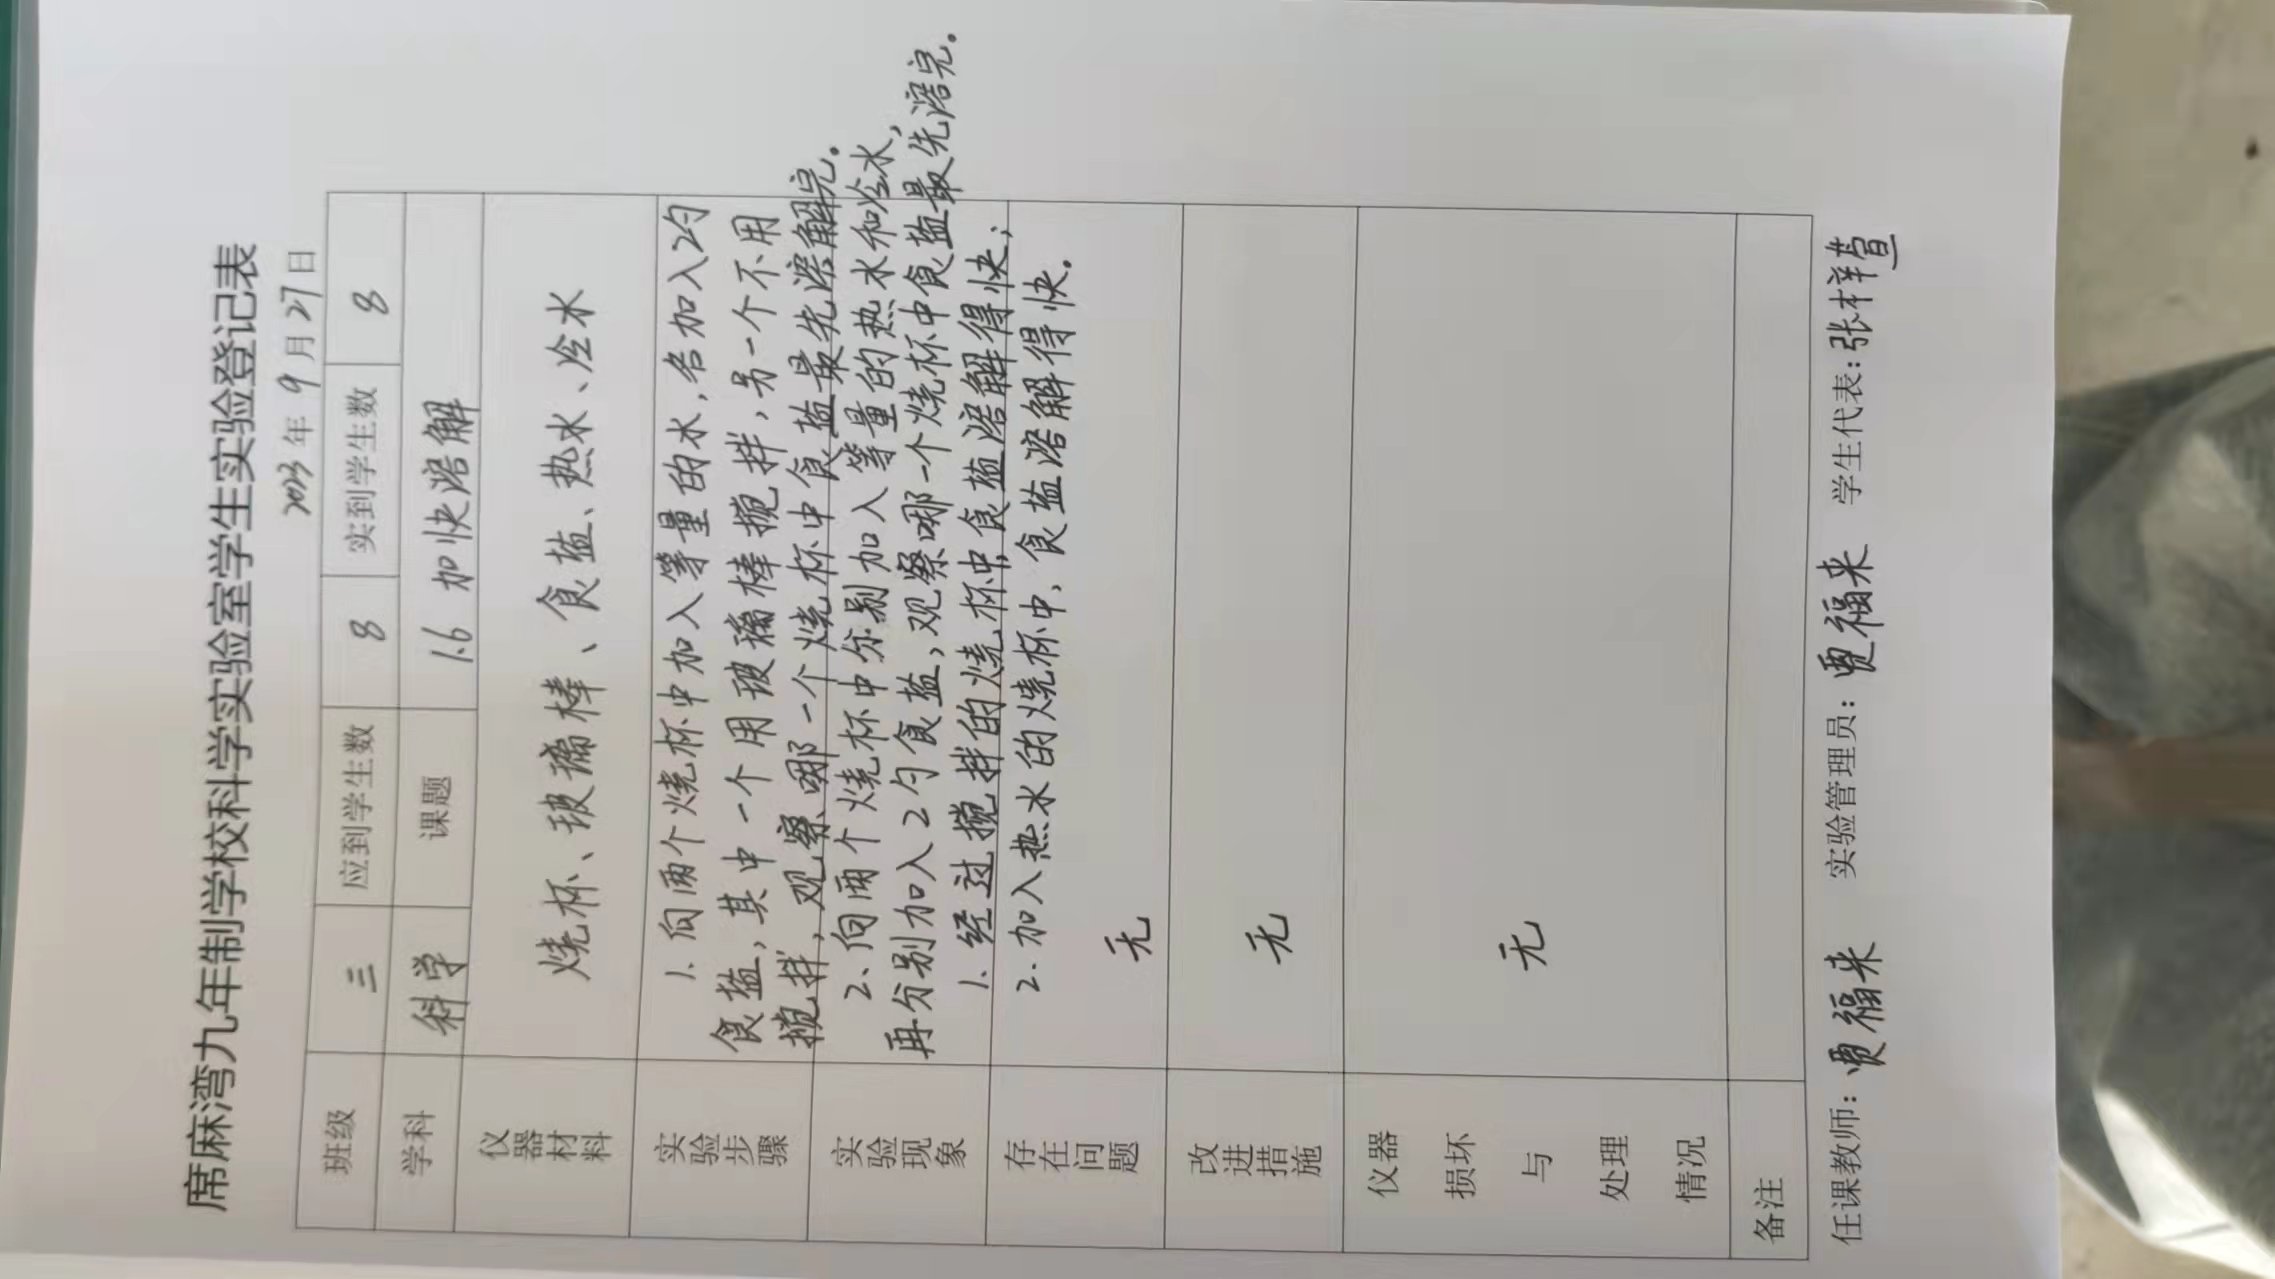 席麻湾九年制学校科学实验室学生实验登记表
2023年9月27日
班级 三 应到学生数 8 实到学生数 8
学科 科学 课题 1.6 加快溶解
仪器材料 烧杯、玻璃棒、食盐、热水、冷水
实验步骤
1.向两个烧杯中加入等量的水,各加入2勺
食盐,其中一个用玻璃棒搅拌,另一个不用
搅拌,观察哪一个烧杯中食盐最先溶解完。
2、向两个烧杯中分别加入等量的热水和冷水,
再分别加入2勺食盐,观察哪一个烧杯中食盐最先溶完。
实验现象
1.经过搅拌的烧杯中,食盐溶解得快;
2.加入热水的烧杯中,食盐溶解得快。
存在问题 无
改进措施 无
仪器损坏与处理情况 无
备注
任课教师:贾福来 实验管理员:贾福来 学生代表:张梓萱